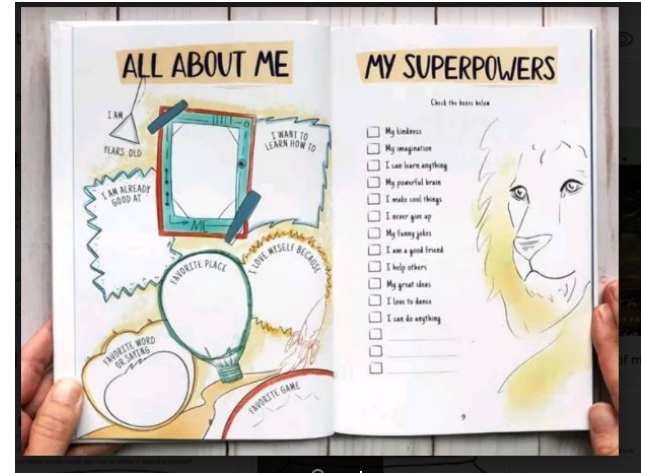 ALL ABOUT ME
I AM
YEARS OLD
ME
I WANT TO
LEARN HOW TO
I AM ALREADY
GOOD AT
FAVORITE PLACE
I LOVE MYSELF BECAUSE
FAVORITE WORD
OR SAYING
FAVORITE GAME
MY SUPERPOWERS
Check the boxes below
My kindness
My imagination
I can learn anything
My powerful brain
I make cool things
I never give up
My funny jokes
I am a good friend
I help others
My great ideas
I love to dance
I can do anything
9